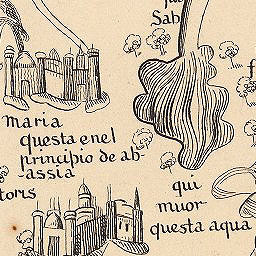 Sab
maria
questa e nel
principio de ab-
-assia
toris
qui
muor
questa aqua